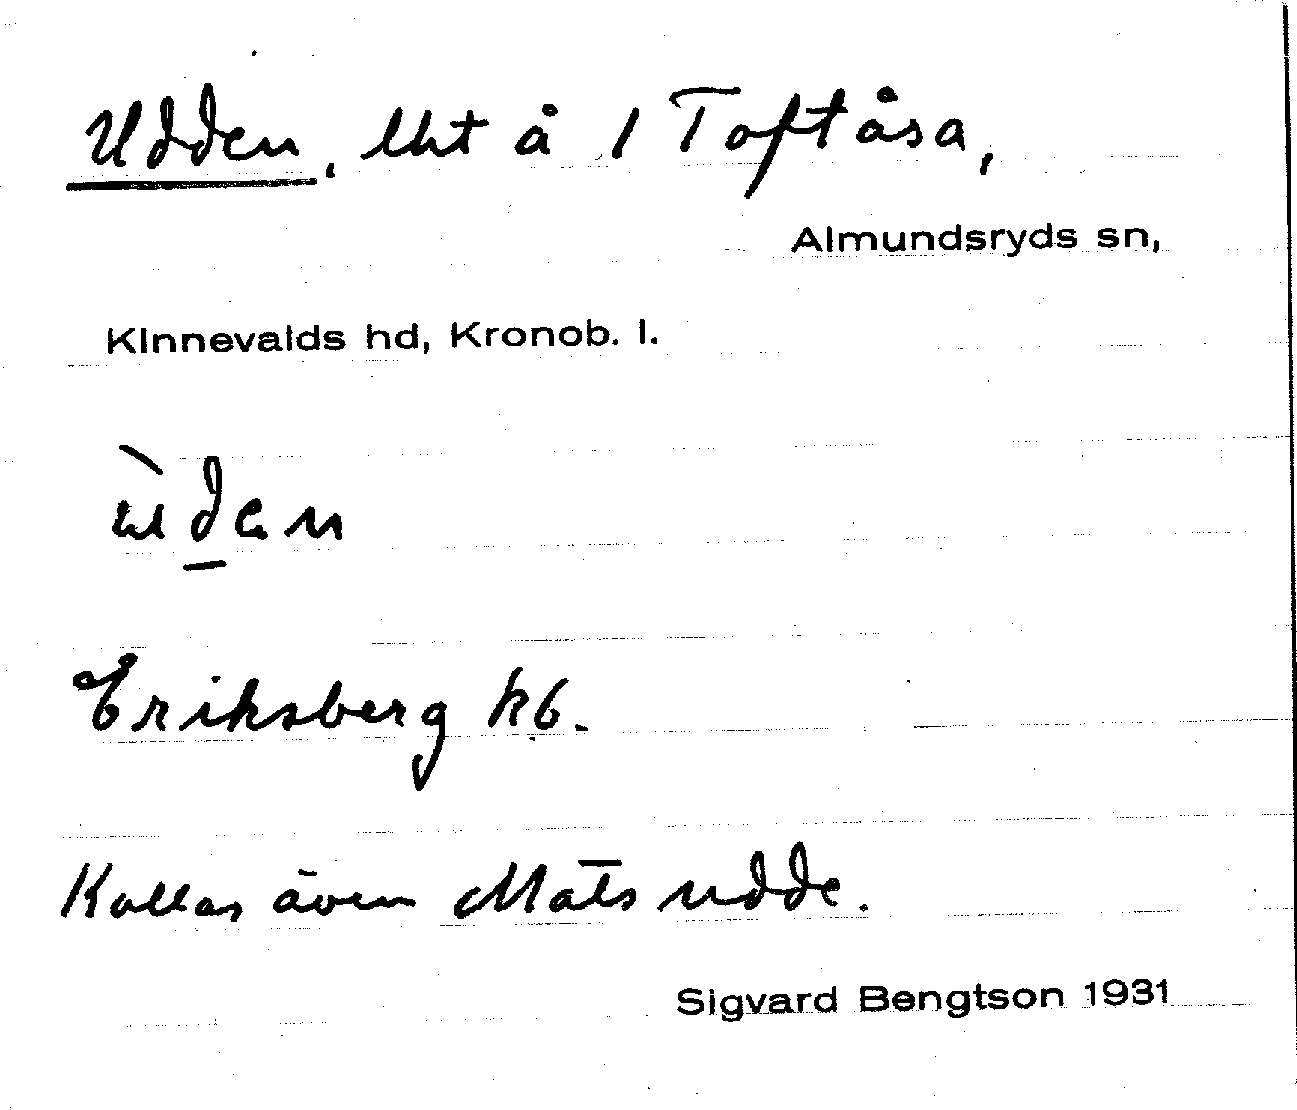 Udden, lht å 1 Toftåsa,
Almundsryds sn,
Kinnevalds hd, Kronob. l.
ùden
Eriksberg kb.
Kallas även Mats udde.
Sigvard Bengtson 1931